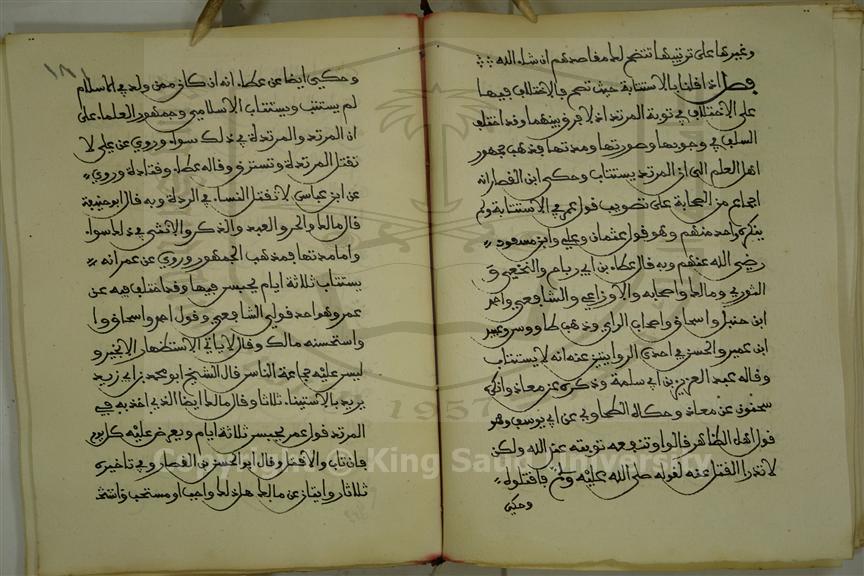 وغيرها على ترتيبها تتضح لك مقاصدهم ان شاء الله
فصل اذا قلنا بالاستتابة حيث تصح فالاختلاف فيها
على الاختلاف في توبة المرتد اذ لا فرق بينهما وقد اختلف
السلف في وجوبها وصورتها ومدتها فذهب جمهور
اهل العلم الى ان المرتد يستتاب وحكى ابن القصار انه
اجماع من الصحابة على تصويب قول عمر في الاستتابة ولم
ينكره واحد منهم وهو قول عثمان وعلي وابن مسعود
رضي الله عنهم وبه قال عطاء بن ابي رباح والنخعي و
الثوري ومالك واصحابه والاوزاعي والشافعي واحمد
ابن حنبل واسحاق واصحاب الراي وذهب طاووس وعبيد
ابن عمير والحسن في احدى الروايتين عنه انه لا يستتاب
وقاله عبد العزيز بن ابي سلمة وذكره عن معاذ وانكره
سحنون عن معاذ وحكاه الطحاوي عن ابي يوسف وهو
قول اهل الظاهر قالوا وتنفعه توبته عند الله ولكن
لا ندرا القتل عنه لقوله صلى الله عليه وسلم فاقتلوه
وحكي
١٨١
وحكي ايضا عن عطاء انه ان كان ممن ولد في الاسلام
لم يستتب ويستتاب الاسلامي وجمهور العلماء على
ان المرتد والمرتدة في ذلك سواء وروي عن علي لا
تقتل المرتدة وتسترق وقاله عطاء وقتادة وروي
عن ابن عباس لا تقتل النساء في الردة وبه قال ابو حنيفة
قال مالك والحر والعبد والذكر والانثى في ذلك سواء
واما مدتها فمذهب الجمهور وروي عن عمر انه
يستتاب ثلاثة ايام يحبس فيها وقد اختلف فيه عن
عمر وهو احد قولي الشافعي وقول احمد واسحاق وا
واستحسنه مالك وقال لا ياتي الاستظهار الا بخير و
ليس عليه جماعة الناس قال الشيخ ابو محمد بن ابي زيد
يريد بالاستيناء ثلاثا وقال مالك ايضا الذي اخذ به في
المرتد قول عمر يحبس ثلاثة ايام ويعرض عليه كل يوم
فان تاب والا قتل وقال ابو الحسن بن القصار وفي تاخيره
ثلاثا روايتان عن مالك هل ذلك واجب او مستحب
Copyright © King Saud University
1957